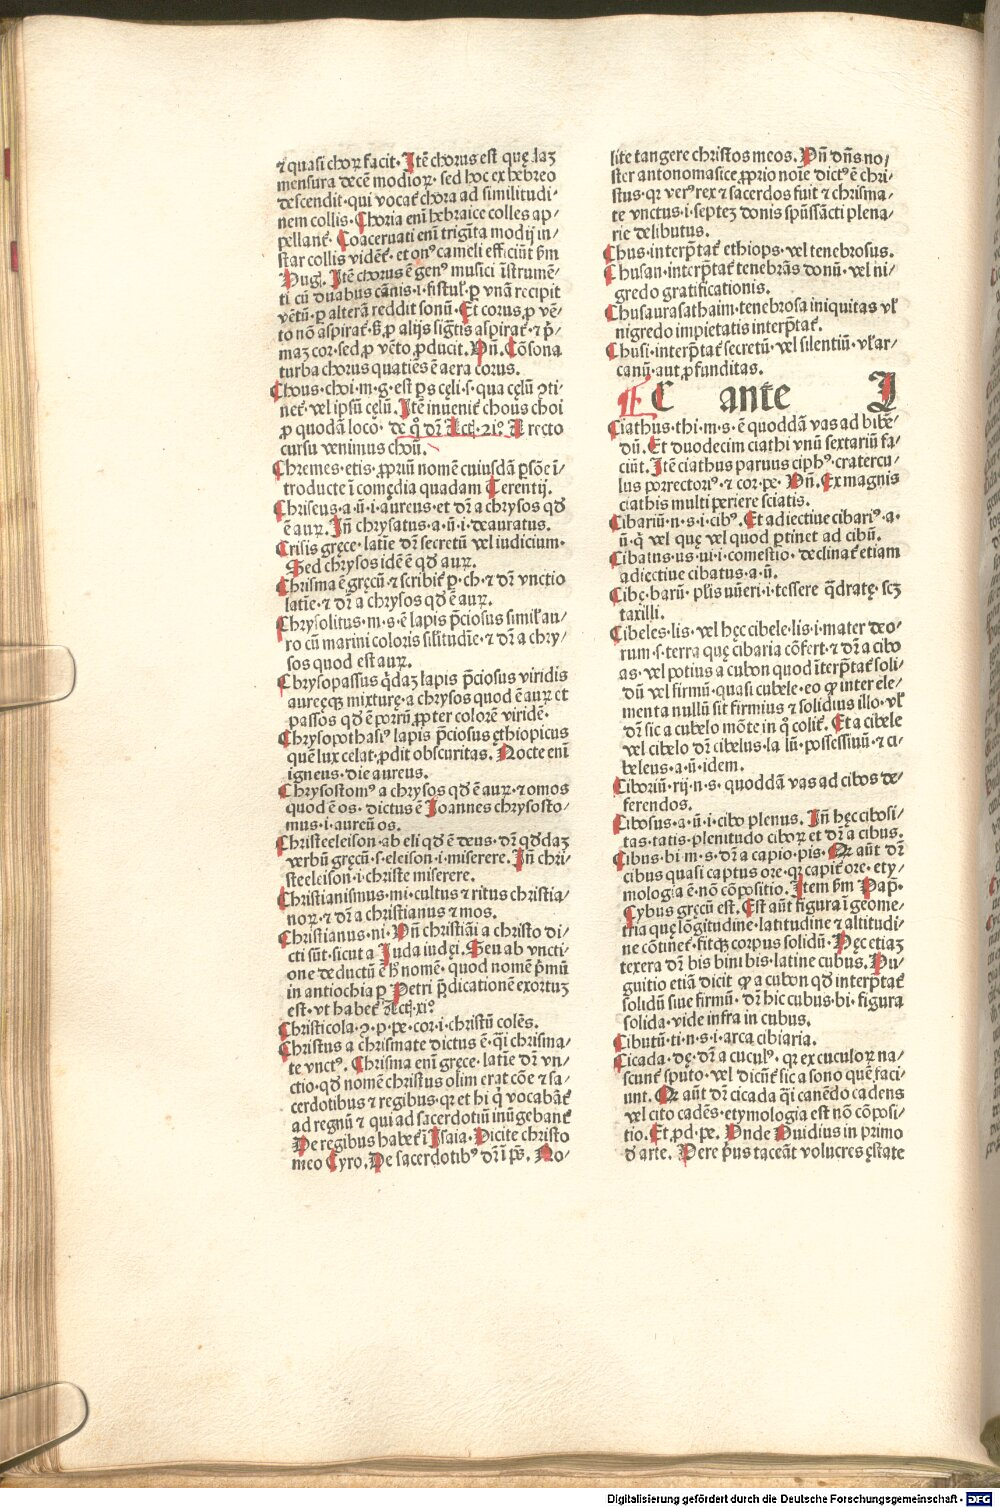 ⁊ quasi choꝝ facit. Itē chorus est quę laꝫ
mensura decē modioꝝ· sed hoc ex hebreo
descendit· qui vocāt chora ad similitudi⸗
nem collis. Choria enī hebraice colles ap⸗
pellant̄. Coaceruati enī triginta modij in⸗
star collis vident̄· et onꝰ cameli efficiūt ẜm
Hug. Itē chorus ē genꝰ musici īstrumē⸗
ti cū duabus cānis·i·fistul· ꝑ vnā recipit
vētū· ꝑ alterā reddit sonū. Et corus ꝓ vē⸗
to nō aspirat̄· ẜꝫ ꝓ alijs sigtis aspirat̄· ⁊ p̄⸗
maꝫ cor· sed ꝓ vēto ꝓducit. Vn̄. Cōsona
turba chorus quatiēs ē aera corus.
Chous·choi·m·g·est ꝑs cęli·s·qua cęlū ꝯti⸗
net· vel ipsū cęlū. Itē inuenit̄ chous choi
ꝓ quodā loco· de q̊ dr̄ Act·21°. A recto
cursu venimus choū.
Chremes·etis·ꝓpriū nomē cuiusdā ꝑsōe ī⸗
troducte ī comędia quadam Terentij.
Chriseus·a·ū·i·aureus·et dr̄ a chrysos qd̄
ē auꝝ. In̄ chrysatus·a·ū·i·deauratus.
Crisis gręce· latīe dr̄ secretū vel iudicium·
Sed chrysos idē ē qd̄ auꝝ.
Chrisma ē gręcū· ⁊ scribit̄ ꝑ·ch·⁊ dr̄ vnctio
latīe·⁊ dr̄ a chrysos qd̄ ē auꝝ.
Chrysolitus·m·s·ē lapis p̄ciosus simil̄ au⸗
ro cū marini coloris sil̄itudīe·⁊ dr̄ a chry⸗
sos quod est auꝝ.
Chrysopassus q̄daꝫ lapis p̄ciosus viridis
aureęqꝫ mixturę·a chrysos quod ē auꝝ et
passos qd̄ ē porrū ꝓpter colorē viridē·
Chrysopothasꝰ lapis p̄ciosus ęthiopicus
quē lux celat·ꝓdit obscuritas. Nocte enī
igneus·die aureus.
Chrysostomꝰ a chrysos qd̄ ē auꝝ·⁊ omos
quod ē os· dictus ē Joannes chrysosto⸗
mus·i·aureū os.
Christeeleison·ab eli qd̄ ē deus· dr̄ qd̄daꝫ
verbū gręcū·s·eleison·i·miserere. In̄ chri⸗
steeleison·i·christe miserere.
Christianismus·mi·cultus ⁊ ritus christia⸗
noꝝ·⁊ dr̄ a christianus ⁊ mos.
Christianus·ni· Vn̄ christiāi a christo di⸗
cti sūt·sicut a Juda iudęi. Seu ab vncti⸗
one deductū ē hͦ nomē· quod nomē p̄mū
in antiochia ꝑ Petri p̄dicationē exortuꝫ
est· vt habet̄ Act·xi°
Christicola·ꝯ·p·pe·cor·i·christū colēs.
Christus a chrismate dictus ē· q̄i chrisma⸗
te vnctꝰ. Chrisma enī gręce· latīe dr̄ vn⸗
ctio·qd̄ nomē christus olim erat cōe ⁊ sa⸗
cerdotibus ⁊ regibus·qꝛ et hi q̇ vocabāt̄
ad regnū ⁊ qui ad sacerdotiū inūgebant̄
De regibus habet̄ ī Isaia. Dicite christo
meo Cyro. De sacerdotibꝰ dr̄ ī ps. No⸗
lite tangere christos meos. Vn̄ dn̄s no⸗
ster antonomasice ꝓprio noīe dictꝰ ē chri⸗
stus·qꝛ verꝰ rex ⁊ sacerdos fuit ⁊ chrisma⸗
te vnctus·i·septeꝫ donis spūssācti plena⸗
rie delibutus.
Chus·interp̄tat̄ ethiops·vel tenebrosus.
Chusan·interp̄tat̄ tenebrās donū·vel ni⸗
gredo gratificationis.
Chusaurasathaim·tenebrosa iniquitas vl̄
nigredo impietatis interp̄tat̄.
Chusi·interp̄tat̄ secretū·vel silentiū·vl̄ ar⸗
canū·aut ꝓfunditas.
C ante I
Ciathus·thi·m·s·ē quoddā vas ad bibē⸗
dū. Et duodecim ciathi vnū sextariū fa⸗
ciūt. Itē ciathus paruus ciphꝰ· cratercu⸗
lus porrectoriꝰ·⁊ cor·pe· Vn̄. Ex magnis
ciathis multi periere sciatis.
Cibariū·n·s·i·cibꝰ. Et adiectiue cibariꝰ·a·
ū·q̇ vel quę vel quod ꝑtinet ad cibū.
Cibatus·us·ui·i·comestio· declinat̄ etiam
adiectiue cibatus·a·ū.
Cibę·barū·pl̄is nūeri·i·tessere q̄dratę·scꝫ
taxilli.
Cibeles·lis·vel hęc cibele·lis·i·mater deo⸗
rum·s·terra quę cibaria cōfert·⁊ dr̄ a cibo
as·vel potius a cubon quod īterp̄tat̄ soli⸗
dū vel firmū·quasi cubele·eo ꝙ inter ele⸗
menta nullū sit firmius ⁊ solidius illo·vl̄
dr̄ sic a cubelo mōte in q̊ colit̄. Et a cibele
vel cibelo dr̄ cibelus·la lū·possessiuū·⁊ ci⸗
beleus·a·ū·idem.
Ciboriū·rij·n·s·quoddā vas ad cibos de⸗
ferendos.
Cibosus·a·ū·i·cibo plenus. In̄ hęc cibosi⸗
tas·tatis·plenitudo ciboꝝ et dr̄ a cibus.
Cibus·bi m·s·dr̄ a capio·pis· Qꝛ aūt dr̄
cibus quasi captus ore·qꝛ capit̄ ore·ety⸗
mologia ē·nō cōpositio. Item ẜm Pap̄·
Cybus gręcū est. Est aūt figura ī geome⸗
tria quę lōgitudine·latitudine ⁊ altitudi⸗
ne cōtinet̄·fitqꝫ corpus solidū· Hęc etiaꝫ
texera dr̄ bis bini bis·latine cubus. Hu⸗
guitio etiā dicit ꝙ a cubon qd̄ interp̄tat̄
solidū siue firmū· dr̄ hic cubus·bi·figura
solida·vide infra in cubus.
Cibutū·ti·n·s·i·arca cibiaria.
Cicada·dę·dr̄ a cuculꝰ·qꝛ ex cuculoꝝ na⸗
scunt̄ sputo·vel dicūt̄ sic a sono quē faci⸗
unt. Qꝛ aūt dr̄ cicada q̄i canēdo cadens
vel cito cadēs·etymologia est nō cōposi⸗
tio. Et ꝓd·pe. Vnde Ouidius in primo
d̄ arte. Vere p̄us taceāt volucres ęstate
Digitalisierung gefördert durch die Deutsche Forschungsgemeinschaft - DFG